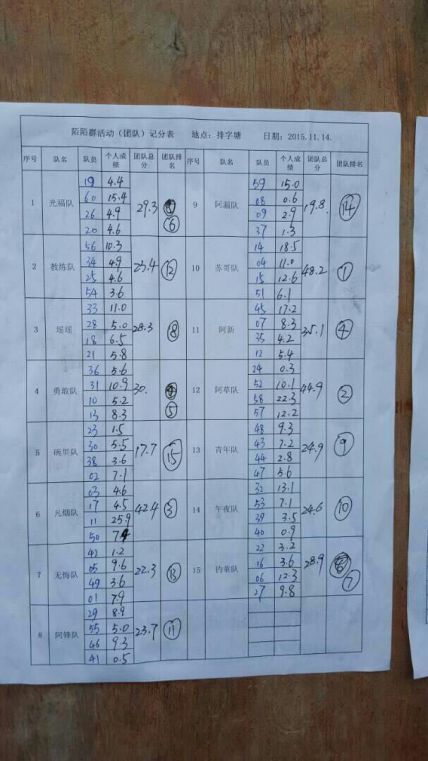 陌陌群活动（团队）记分表 地点：排字塘 日期：2015.11.14.
序号 队名 队员 个人成绩 团队总分 团队排名 序号 队名 队员 个人成绩 团队总分 团队排名
1 光福队 29.3 ⑥ 9 19.8 ⑭
19 4.4 59 15.0
60 15.4 08 0.6
26 4.9 09 2.9
20 4.6 37 1.3
2 教练队 23.4 ⑫ 10 苏哥队 48.2 ①
56 10.3 14 18.5
34 4.9 04 11.0
25 4.6 15 12.6
54 3.6 51 6.1
3 瑶瑶 28.3 ⑧ 11 阿新 35.1 ④
33 11.0 45 17.2
28 5.0 07 8.3
18 6.5 35 4.2
21 5.8 12 5.4
4 勇敢队 30. ⑤ 12 阿草队 44.9 ②
36 5.6 24 0.3
31 10.9 52 10.1
10 5.2 58 22.3
13 8.3 57 12.2
5 17.7 ⑮ 13 青年队 24.9 ⑨
23 1.5 48 9.3
30 5.5 43 7.2
38 3.6 44 2.8
02 7.1 47 5.6
6 42.4 ③ 14 午夜队 24.6 ⑩
03 4.6 32 13.1
17 4.5 53 7.1
11 25.9 39 3.5
50 7.4 40 0.9
7 无悔队 22.3 ⑬ 15 钓童队 28.9 ⑦
42 1.2 22 3.2
05 9.6 16 3.6
49 3.6 06 12.3
01 7.9 27 9.8
8 阿锋队 23.7 ⑪
29 8.9
55 5.0
46 9.3
41 0.5